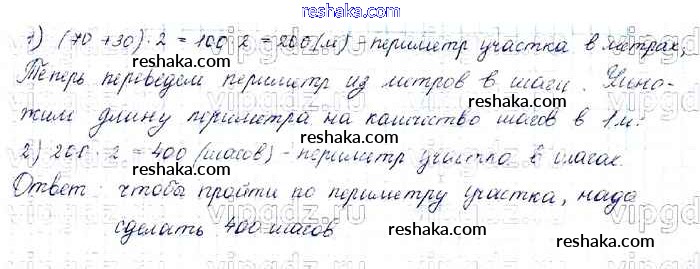 reshaka.ru
1) (70 + 30) · 2 = 100 · 2 = 200 (м) - периметр участка в метрах,
Теперь переведем периметр из метров в шаги. Умно-
жим длину периметра на количество шагов в 1 м.
2) 200 · 2 = 400 (шагов) - периметр участка в шагах.
Ответ: чтобы пройти по периметру участка, надо
сделать 400 шагов
reshaka.ru
reshaka.ru
reshaka.ru
reshaka.ru
reshaka.ru